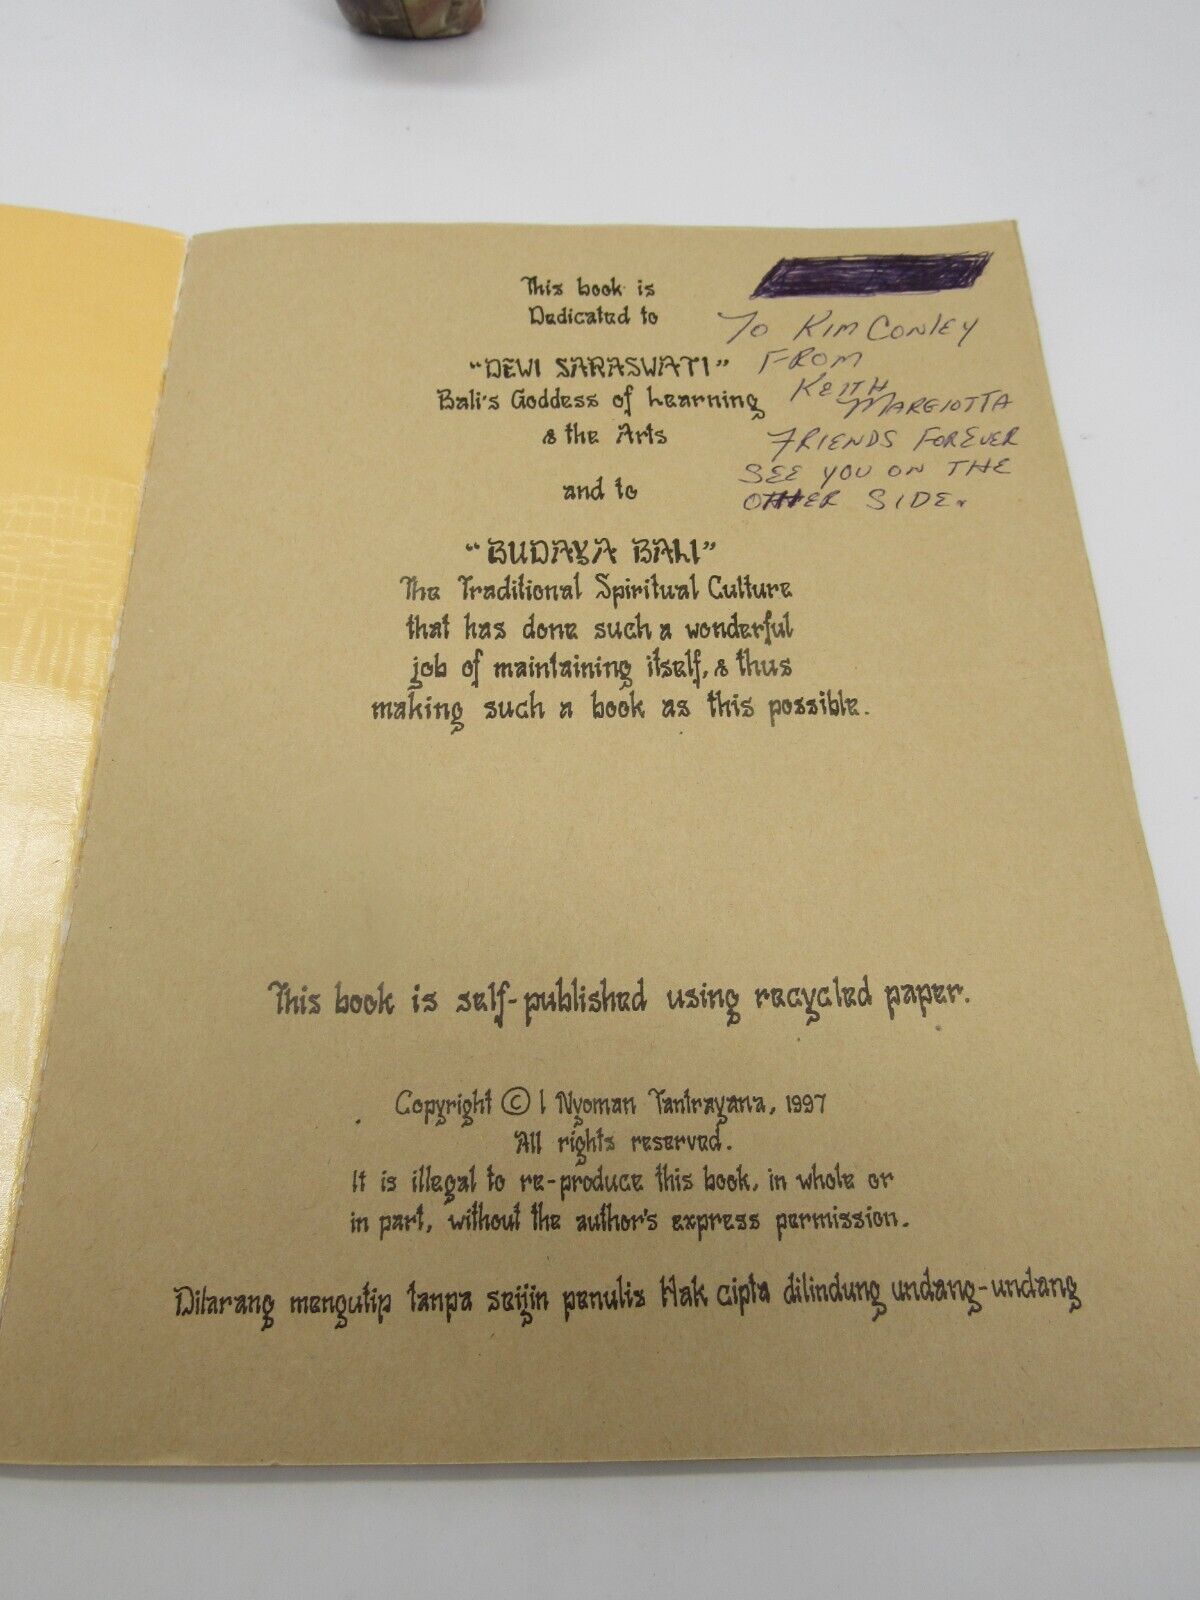 This book is
Dedicated to
"DEWI SARASWATI"
Bali's Goddess of Learning
& the Arts
and to
"BUDAYA BALI"
The Traditional Spiritual Culture
that has done such a wonderful
job of maintaining itself, & thus
making such a book as this possible.
TO KIM CONLEY
FROM
KEITH
MARGIOTTA
FRIENDS FOREVER
SEE YOU ON THE
OTHER SIDE.
This book is self-published using recycled paper.
Copyright © I Nyoman Tantrayana, 1997
All rights reserved.
It is illegal to re-produce this book, in whole or
in part, without the author's express permission.
Dilarang mengutip tanpa seijin penulis Hak cipta dilindung undang-undang